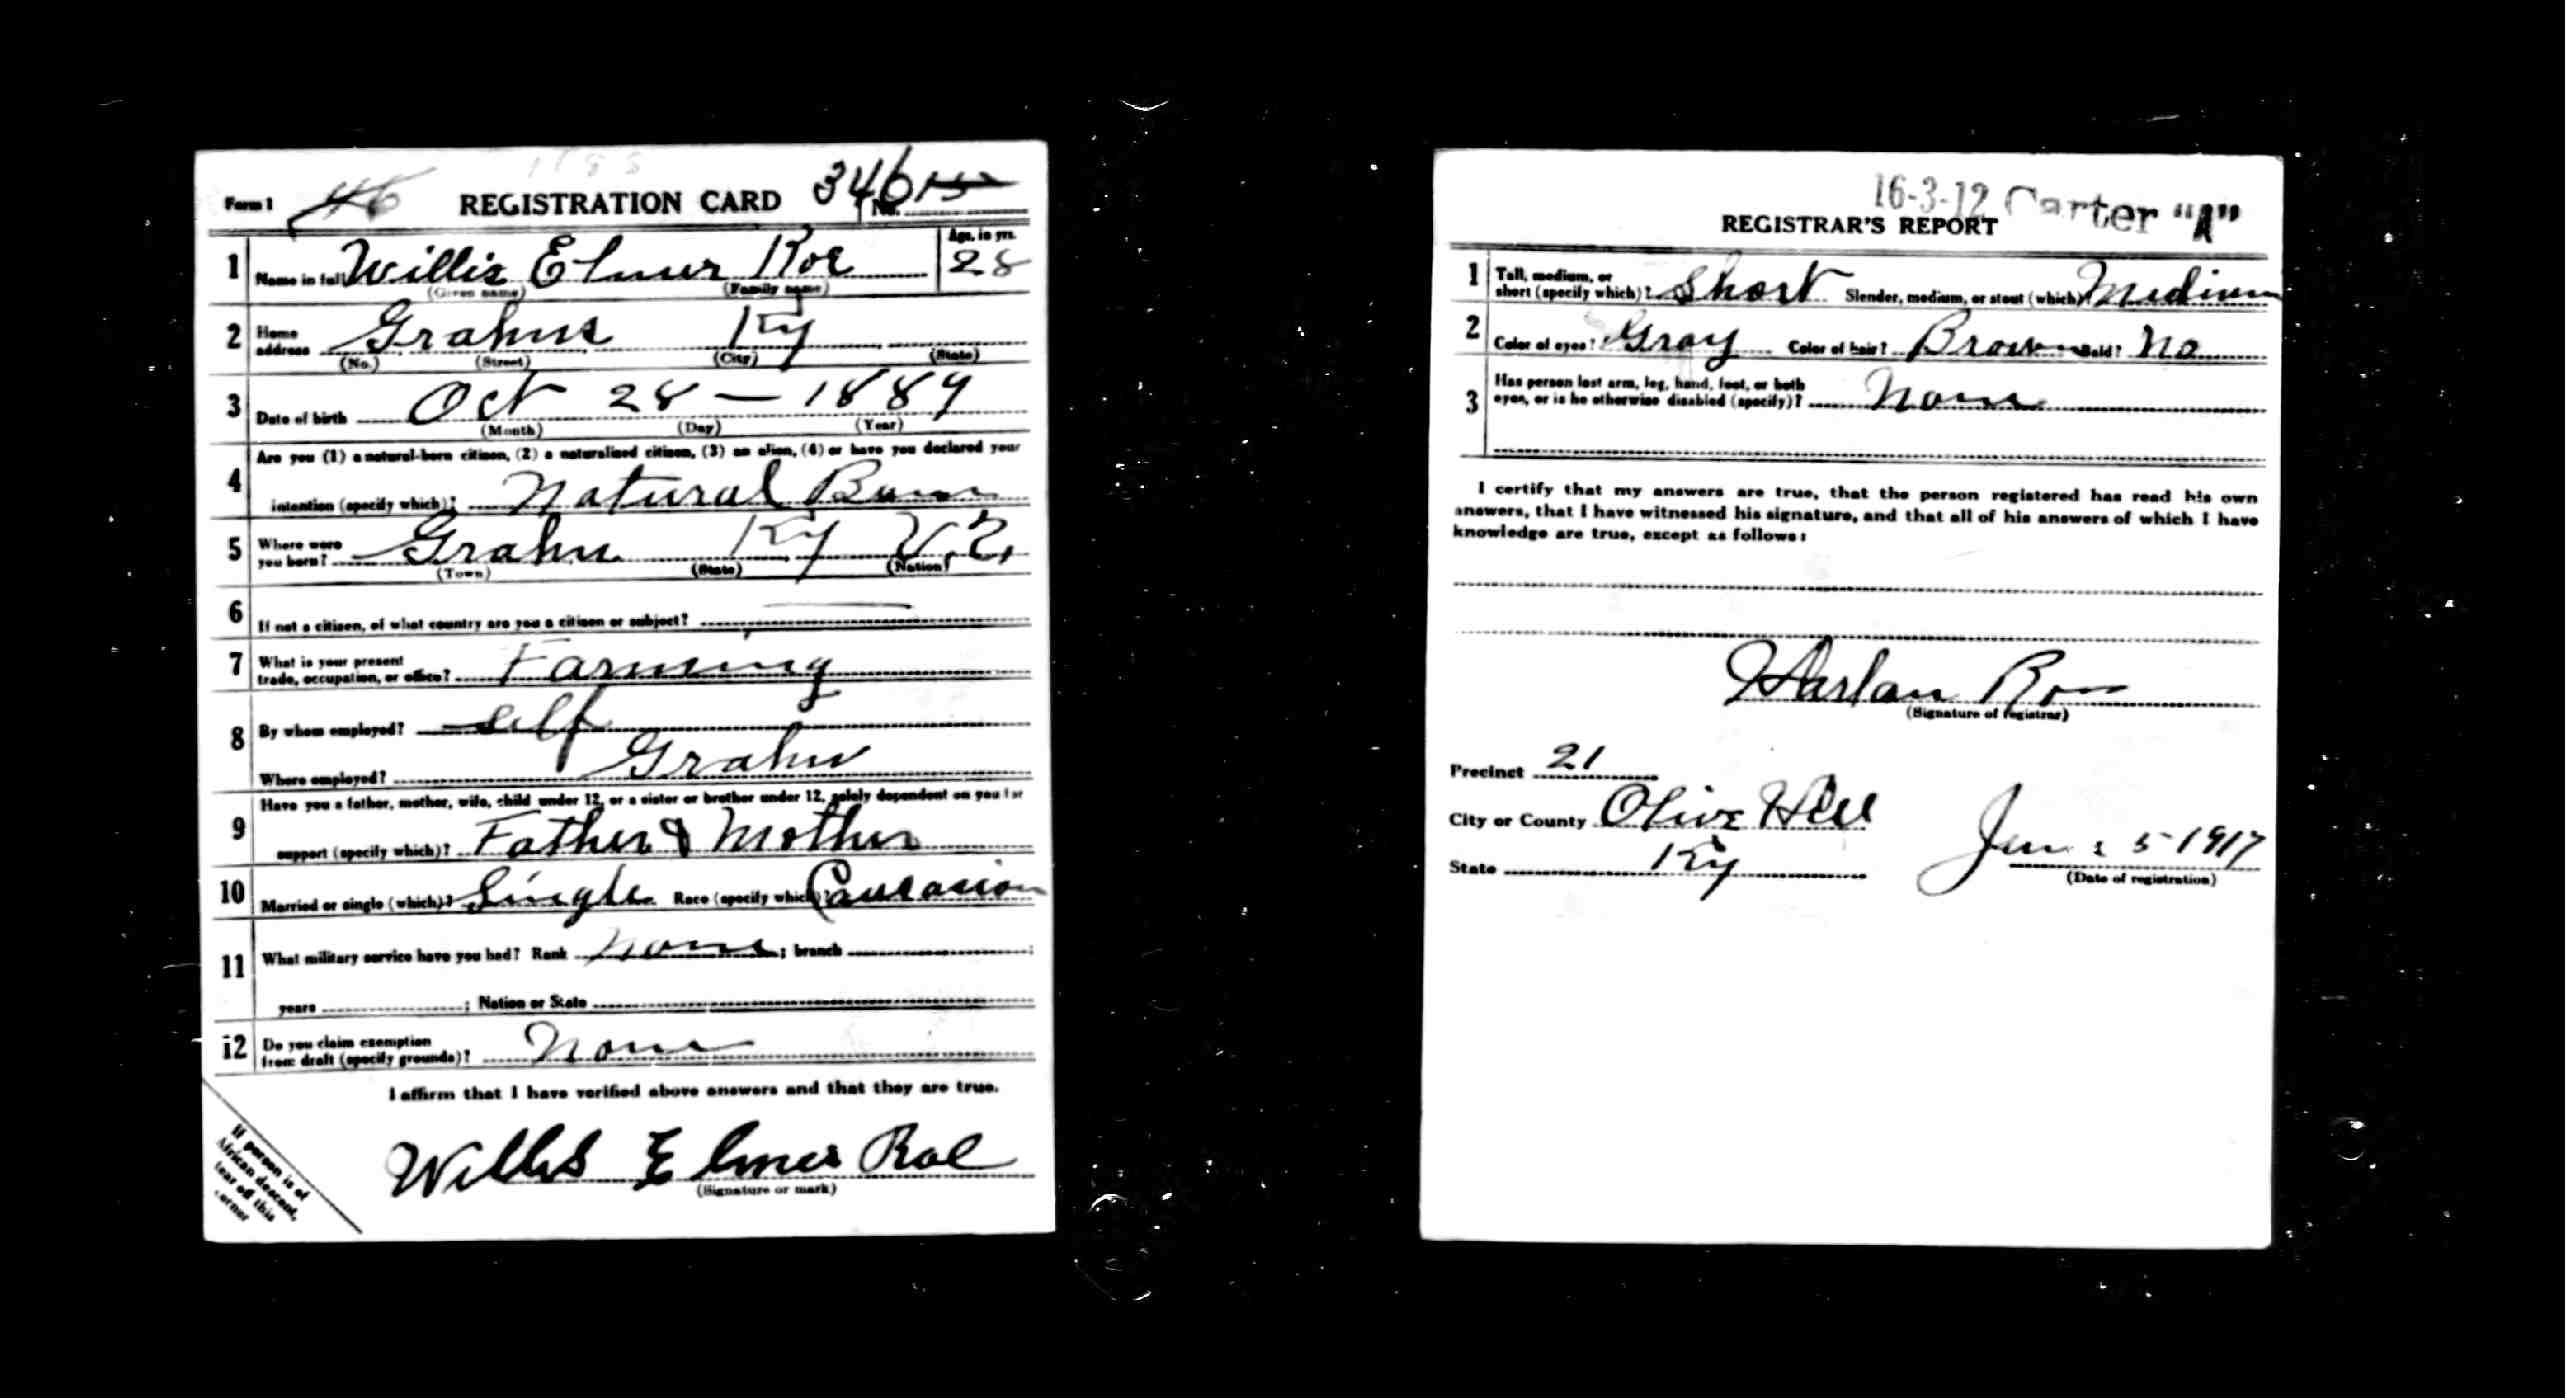 Form 1 46 REGISTRATION CARD 346 No.
1 Name in full Willis Elmer Roe Age, in yrs. 28
(Given name) (Family name)
2 Home address Grahns Ky
(No.) (Street) (City) (State)
3 Date of birth Oct 28 — 1889
(Month) (Day) (Year)
Are you (1) a natural-born citizen, (2) a naturalized citizen, (3) an alien, (4) or have you declared your
4 intention (specify which)? Natural Burn
5 Where were you born? Grahn Ky U.S.
(Town) (State) (Nation)
6 If not a citizen, of what country are you a citizen or subject? —
7 What is your present trade, occupation, or office? Farming
8 By whom employed? Self
Where employed? Grahn
Have you a father, mother, wife, child under 12, or a sister or brother under 12, solely dependent on you for
9 support (specify which)? Father & Mother
10 Married or single (which)? Single Race (specify which)? Caucasion
11 What military service have you had? Rank None ; branch ;
years ; Nation or State
12 Do you claim exemption from draft (specify grounds)? None
I affirm that I have verified above answers and that they are true.
Willis Elmer Roe
(Signature or mark)
If person is of
African descent,
tear off this
corner
16-3-12 Carter "A"
REGISTRAR'S REPORT
1 Tall, medium, or short (specify which)? Short Slender, medium, or stout (which)? Medium
2 Color of eyes? Gray Color of hair? Brown Bald? No
Has person lost arm, leg, hand, foot, or both
3 eyes, or is he otherwise disabled (specify)? None
I certify that my answers are true, that the person registered has read his own
answers, that I have witnessed his signature, and that all of his answers of which I have
knowledge are true, except as follows:
Harlan
(Signature of registrar)
Precinct 21
City or County Olive Hill
State Ky June 5 1917
(Date of registration)